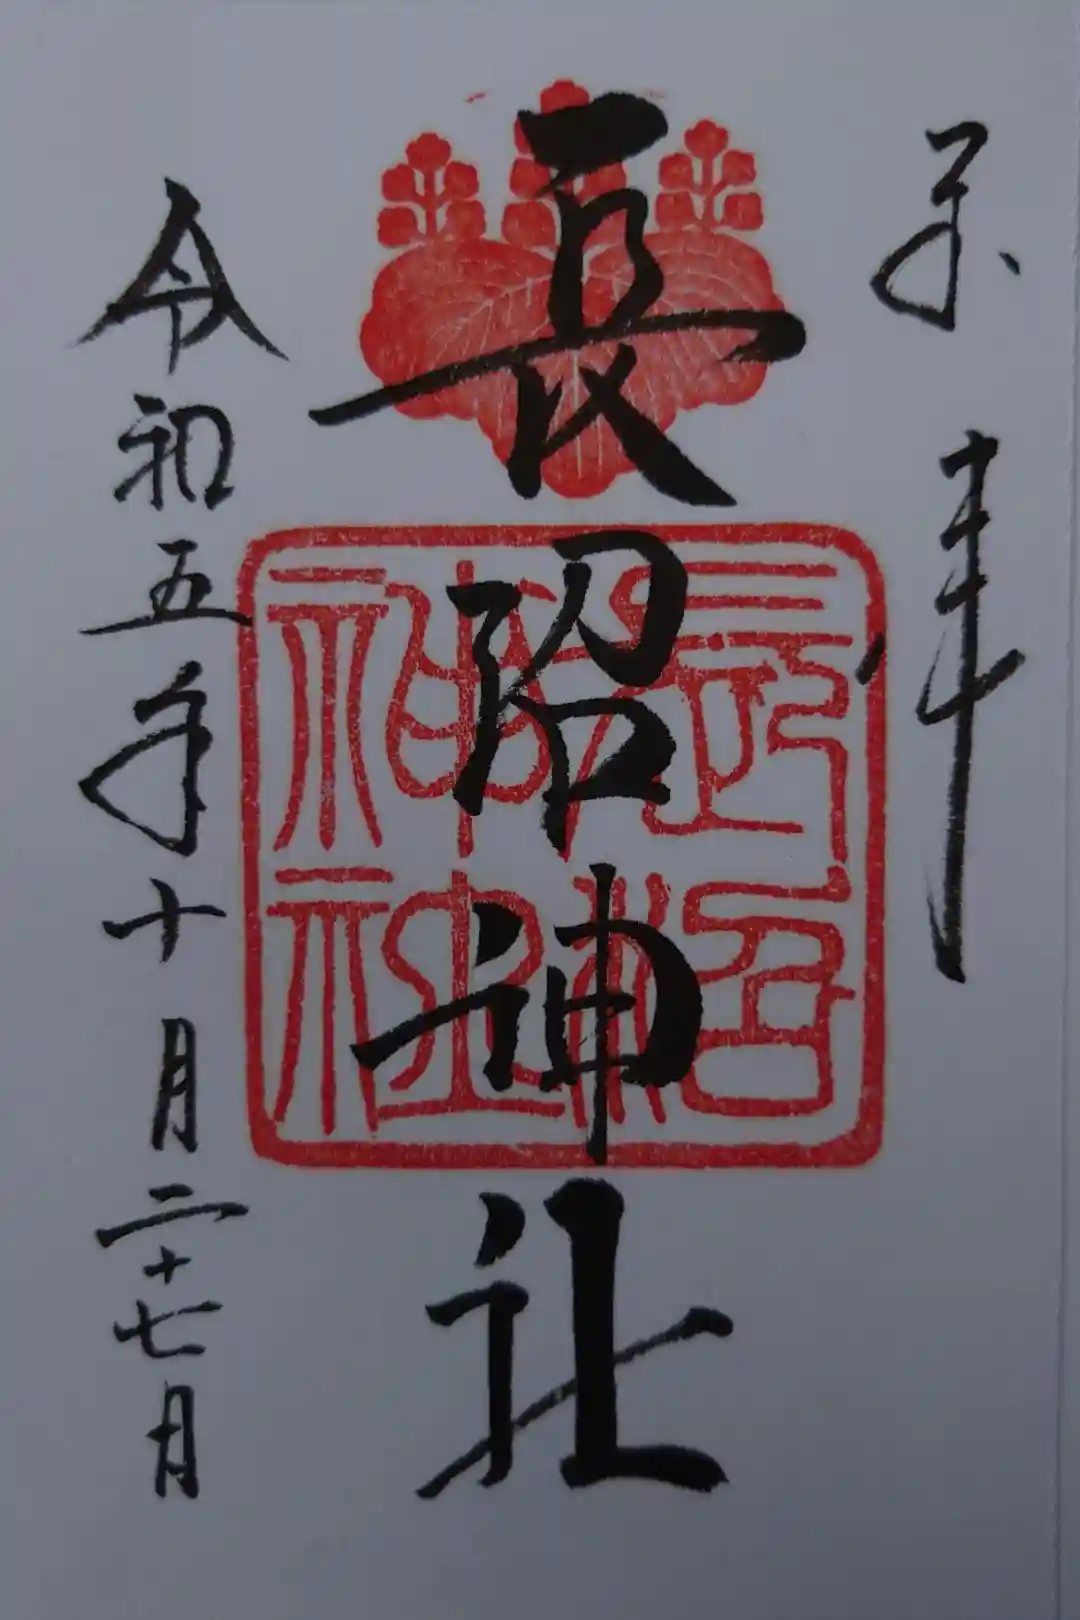 奉拝
長沼神社
長沼
神社
令和五年十月二十七日